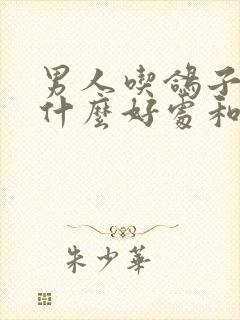 男人喫鴿子
什麼好處和
朱少華